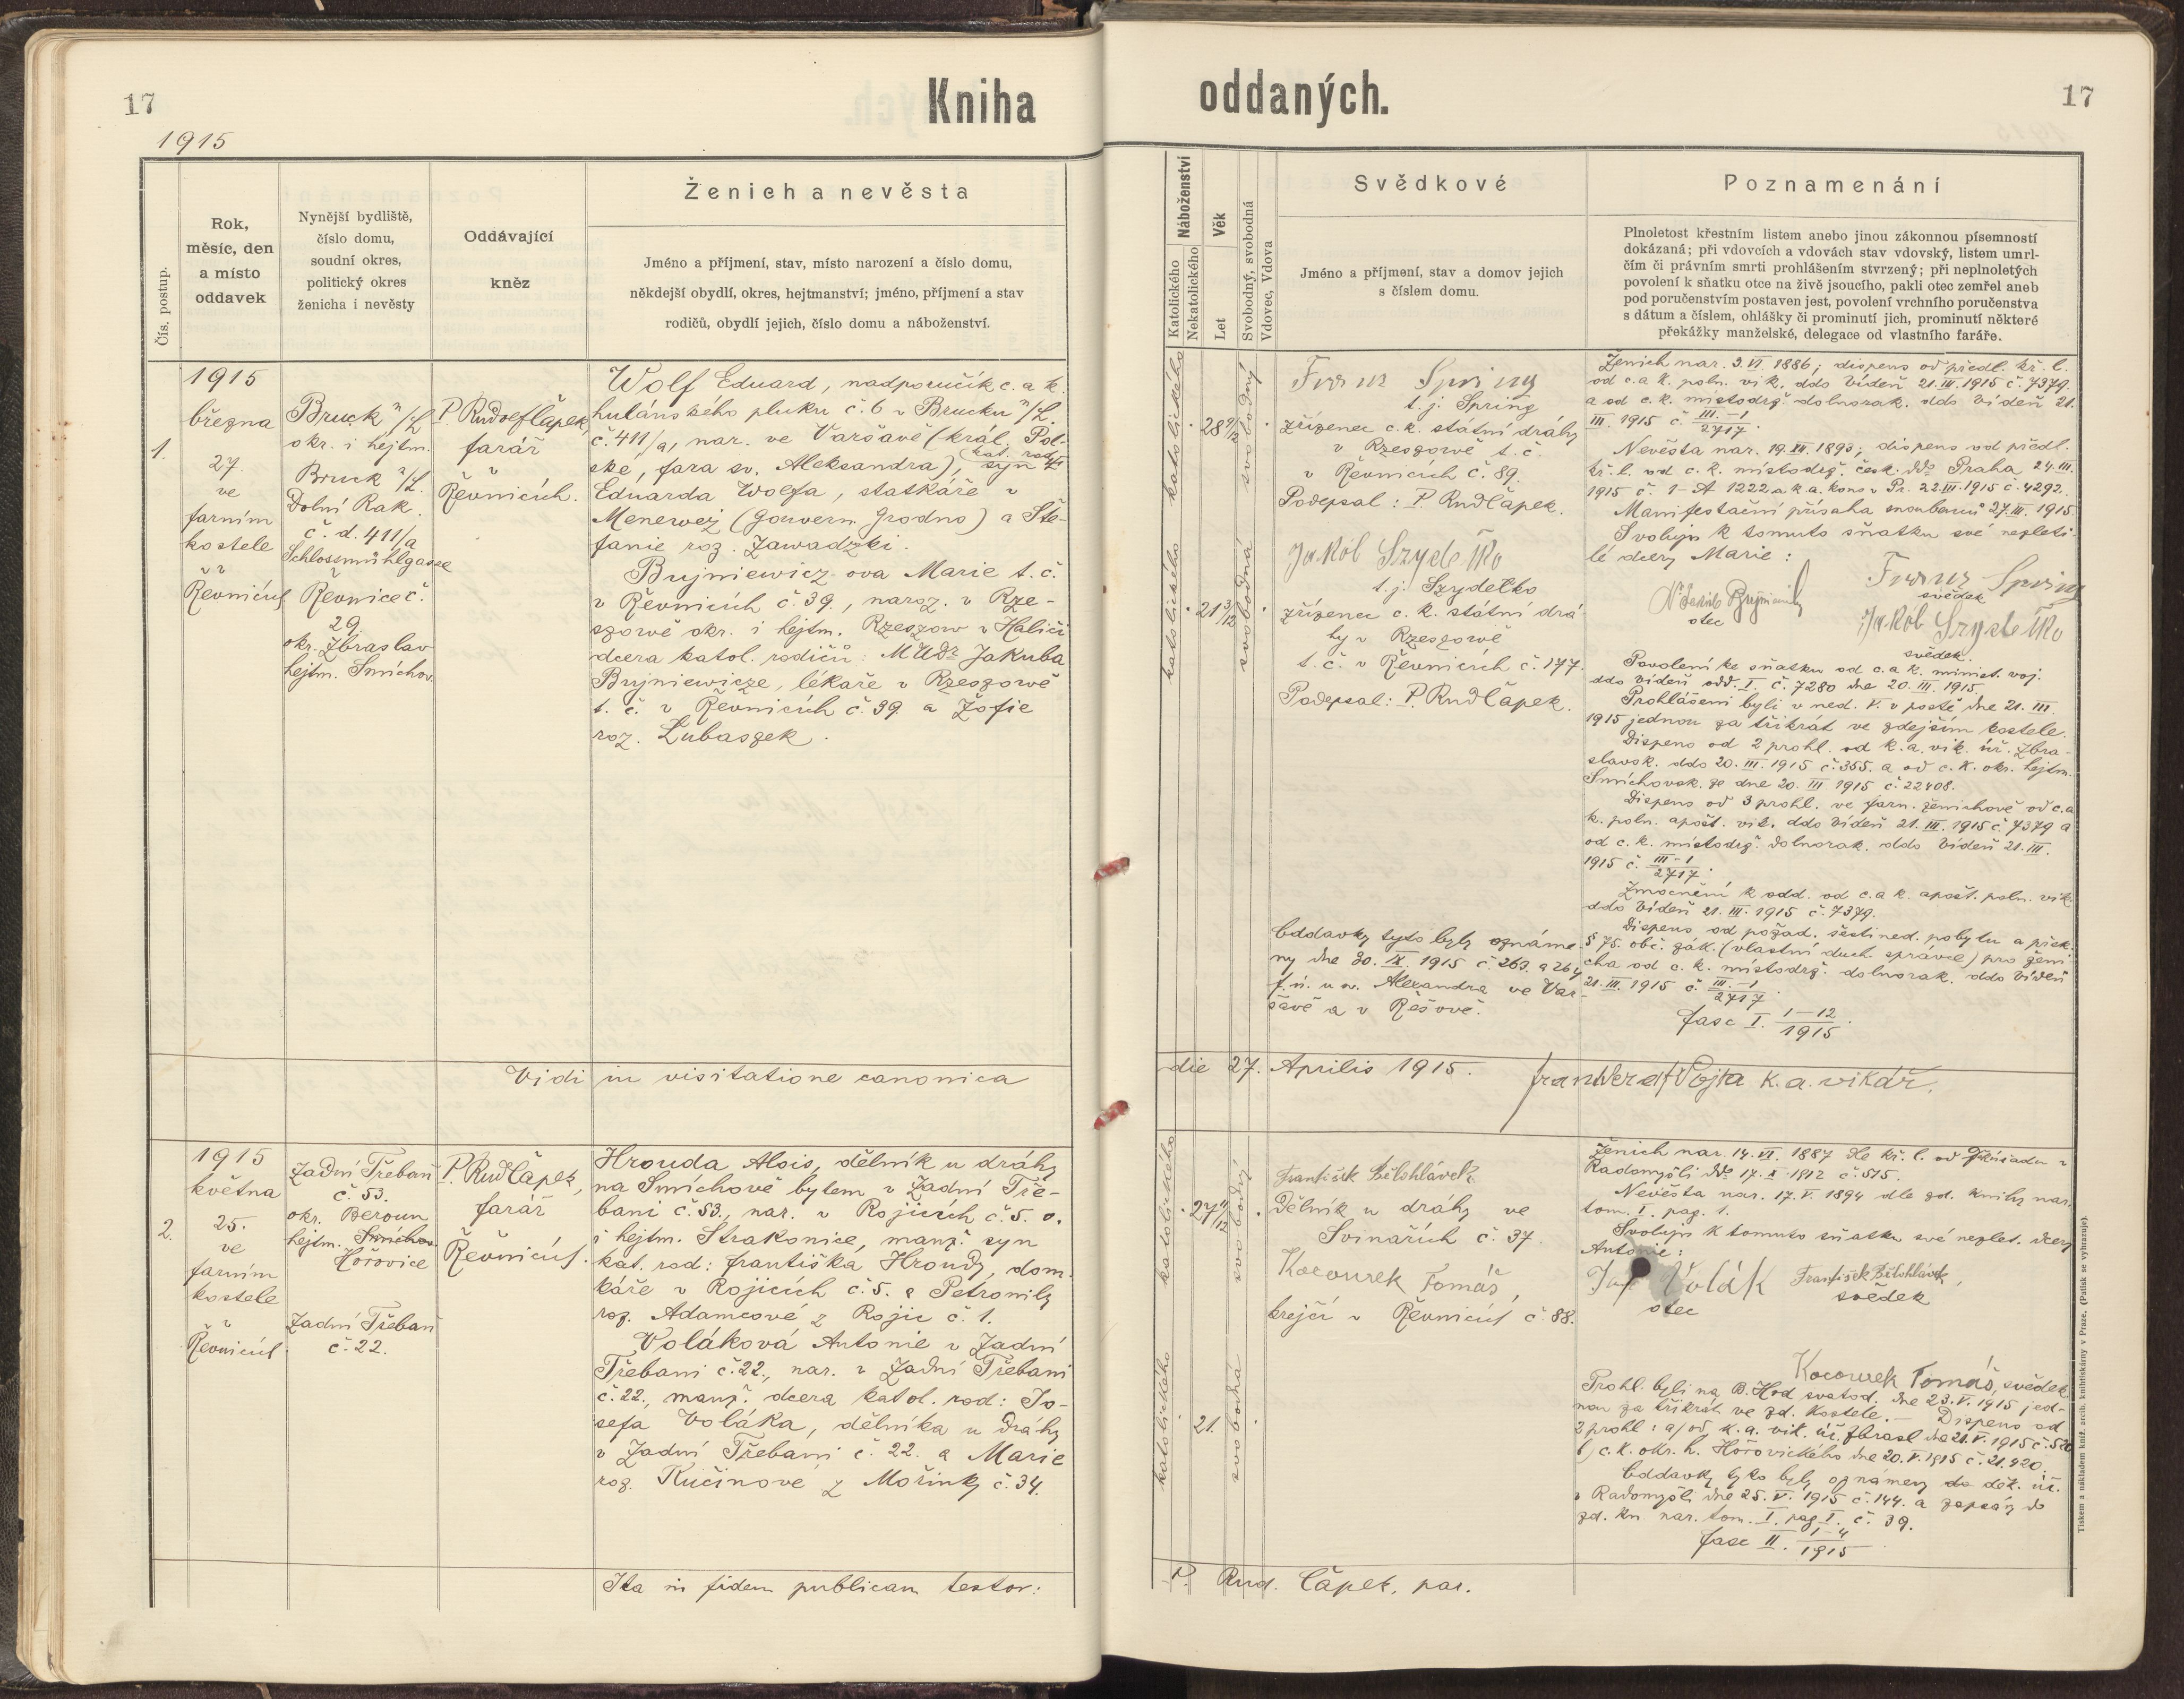 17
Kniha
oddaných.
17
1915
Čís. postup.
Rok,
měsíc, den
a místo
oddavek
Nynější bydliště,
číslo domu,
soudní okres,
politický okres
ženicha i nevěsty
Oddávající
kněz
Ženich a nevěsta
Jméno a příjmení, stav, místo narození a číslo domu,
někdejší obydlí, okres, hejtmanství; jméno, příjmení a stav
rodičů, obydlí jejich, číslo domu a náboženství.
Náboženství
Katolického
Nekatolického
Věk
Let
Svobodný, svobodná
Vdovec, Vdova
Svědkové
Jméno a příjmení, stav a domov jejich
s číslem domu.
Poznamenání
Plnoletost křestním listem anebo jinou zákonnou písemností
dokázaná; při vdovcích a vdovách stav vdovský, listem umrl-
čím či právním smrti prohlášením stvrzený; při neplnoletých
povolení k sňatku otce na živě jsoucího, pakli otec zemřel aneb
pod poručenstvím postaven jest, povolení vrchního poručenstva
s dátum a číslem, ohlášky či prominutí jich, prominutí některé
překážky manželské, delegace od vlastního faráře.
1.
1915
března
27.
ve
farním
kostele
v
Řevnicích
Bruck n/L
okr. i hejtm.
Bruck n/L.
Dolní Rak.
č. d. 411/a
Schlossmühlgasse
Řevnice č.
29.
okr. Zbraslav
hejtm. Smíchov.
P. Rudolf Čapek,
farář
v
Řevnicích.
Wolf Eduard, nadporučík c. a k.
hulánského pluku č. 6 v Brucku n/L.
č. 411/a, nar. ve Varšavě (král. Pol-
ské, fara sv. Aleksandra), kat. rodičů syn
Eduarda Wolfa, statkáře v
Menewež (Gouvern. Grodno) a Šte-
fanie roz. Zawadzki.
Bujniewicz-ova Marie t. č.
v Řevnicích č. 39., naroz. v Rze-
szowě okr. i hejtm. Rzeszow v Haliči
dcera katol. rodičů: MUDr Jakuba
Bujniewicze, lékaře v Rzeszowě
t. č. v Řevnicích č. 39. a Žofie
roz. Lubaszek.
katolického
28 9/12
svobodný
katolického
21 3/12
svobodná
Franz Spring
t. j. Spring
zřízenec c. k. státní dráhy
v Rzeszowě t. č.
v Řevnicích č. 89.
Podepsal: P. Rud Čapek.
Jakób Szydełko
t. j. Szydełko
zřízenec c. k. státní drá-
hy v Rzeszowě
t. č. v Řevnicích č. 177.
Podepsal: P. Rud Čapek.
Oddavky tyto byly oznáme-
ny dne 30. IX. 1915 č. 263. a 264
f. ú. u sv. Alexandra ve Var-
šavě a v Řešově.
Ženich nar. 3. VI. 1886; dispens od předl. kř. l.
od c. a k. poln. vik. ddo Vídeň 21. III. 1915 č. 7379.
a od c. k. místodrž. dolnorak. ddo Vídeň 21.
III. 1915 č. III.-1/2717.
Nevěsta nar. 19. XII. 1893; dispens od předl.
kř. l. od c. k. místodrž. česk. ddo Praha 24. III.
1915 č. 1-A 1222 a k. a. kons v Pr. 22. III. 1915 č. 4292.
Manifestační přísaha snoubenců 27. III. 1915.
Svoluji k tomuto sňatku své nezleti-
lé dcery Marie:
Franz Spring
svědek
Bujniewicz
otec
Jakób Szydełko
svědek.
Povolení ke sňatku od c. a k. minist. voj.
ddo Vídeň odd. I. č. 7280 dne 20. III. 1915.
Prohlášeni byli v ned. V. v postě dne 21. III.
1915 jednou za třikrát ve zdejším kostele.
Dispens od 2 prohl. od k. a. vik. úř. Zbra-
slavsk. ddo 20. III. 1915 č. 355. a od c. k. okr. hejtm.
Smíchovsk. ze dne 20. III 1915 č. 22408.
Dispens od 3 prohl. ve farn. ženichově od c. a
k. poln. apošt. vik. ddo Vídeň 21. III. 1915 č. 7379 a
od c. k. místodrž. dolnorak. ddo Vídeň 21. III.
1915 č. III-1/2717.
Zmocnění k odd. od c. a k. apošt. poln. vik.
ddo Vídeň 21. III. 1915 č. 7379.
Dispens od požad. šestined. pobytu a přek.
§ 75. obč. zák. (vlastní duch. správce) pro ženi-
cha od c. k. místodrž. dolnorak. ddo Vídeň
21. III. 1915 č. III.-1/2717.
fasc I. 1-12/1915.
Vidi in visitatione canonica
die 27. Aprilis 1915.
Vojta k. a. vikář.
2.
1915
května
25.
ve
farním
kostele
v
Řevnicích
Zadní Třebaň
č. 53.
okr. Beroun
hejtm. Smíchov
Hořovice
Zadní Třebaň
č. 22.
P. Rud Čapek,
farář
Řevnicích.
Hrouda Alois, dělník u dráhy
na Smíchově bytem v Zadní Tře-
bani č. 53., nar. v Rojicích č. 5. o.
i hejtm. Strakonice, manž. syn
kat. rod: Františka Hroudy, dom-
káře v Rojicích č. 5. a Petronily
roz. Adamcové z Rojic č. 1.
Voláková Antonie v Zadní
Třebani č. 22., nar. v Zadní Třebani
č. 22., manž. dcera katol. rod: Jo-
sefa Voláka, dělníka u dráhy
v Zadní Třebani č. 22. a Marie
roz. Kučinové z Mořinky č. 34.
katolického
27 11/12
svobodný
katolického
21.
svobodná
František Bělohlávek
dělník u dráhy ve
Svinařích č. 37.
Kocourek Tomáš,
krejčí v Řevnicích č. 88.
Ženich nar. 14. VI. 1887 dle kř. l. od
Radomyšli ddo 17. X. 1912 č. 515.
Nevěsta nar. 17. V. 1894 dle zd. knihy nar.
tom. I. pag. 1.
Svoluji k tomuto sňatku své nezlet. dcery
Antonie:
Volák
otec
František Bělohlávek,
svědek
Kocourek Tomáš, svědek
Prohl. byli na B. Hod svatod. dne 23. V. 1915 jed-
nou za třikrát ve zd. kostele. — Dispens od
2 prohl: a/ od k. a. vik. úř. Zbrasl dne 21. V. 1915 č. 520
b/ c. k. okr. h. Hořovického dne 20. V. 1915 č. 21.920.
Oddavky tyto byly oznámeny do děk. úř.
v Radomyšli dne 25. V. 1915 č. 144. a zapsány do
zd. kn nar. tom. I. pag I. č. 39.
fasc II. 1-4/1915
Ita in fidem publicam testor:
P. Rud. Čapek, par.
Tiskem a nákladem kníž. arcib. knihtiskárny v Praze. (Patisk se vyhrazuje).